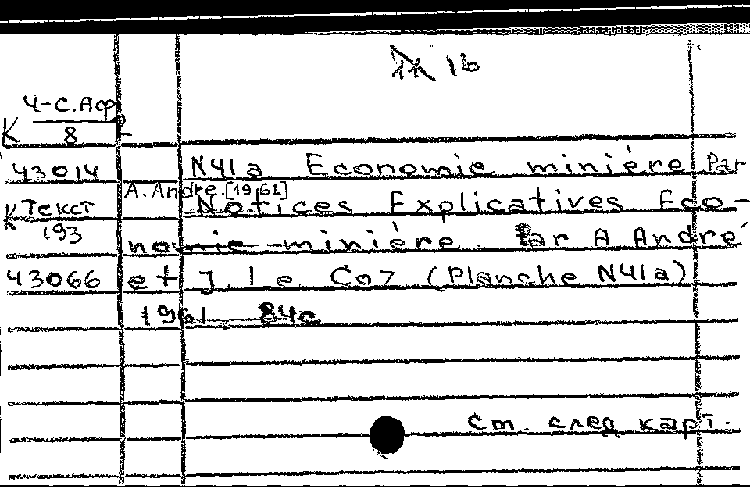 16
Ч-С.Аф
К 8
43014 N41a Economie minière Par
A. Andre [1961]
К Текст Notices Explicatives Eco-
193 nomie minière. Par A André
43066 et J. le Coz (Planche N41a)
1961 84с
См. след карт.